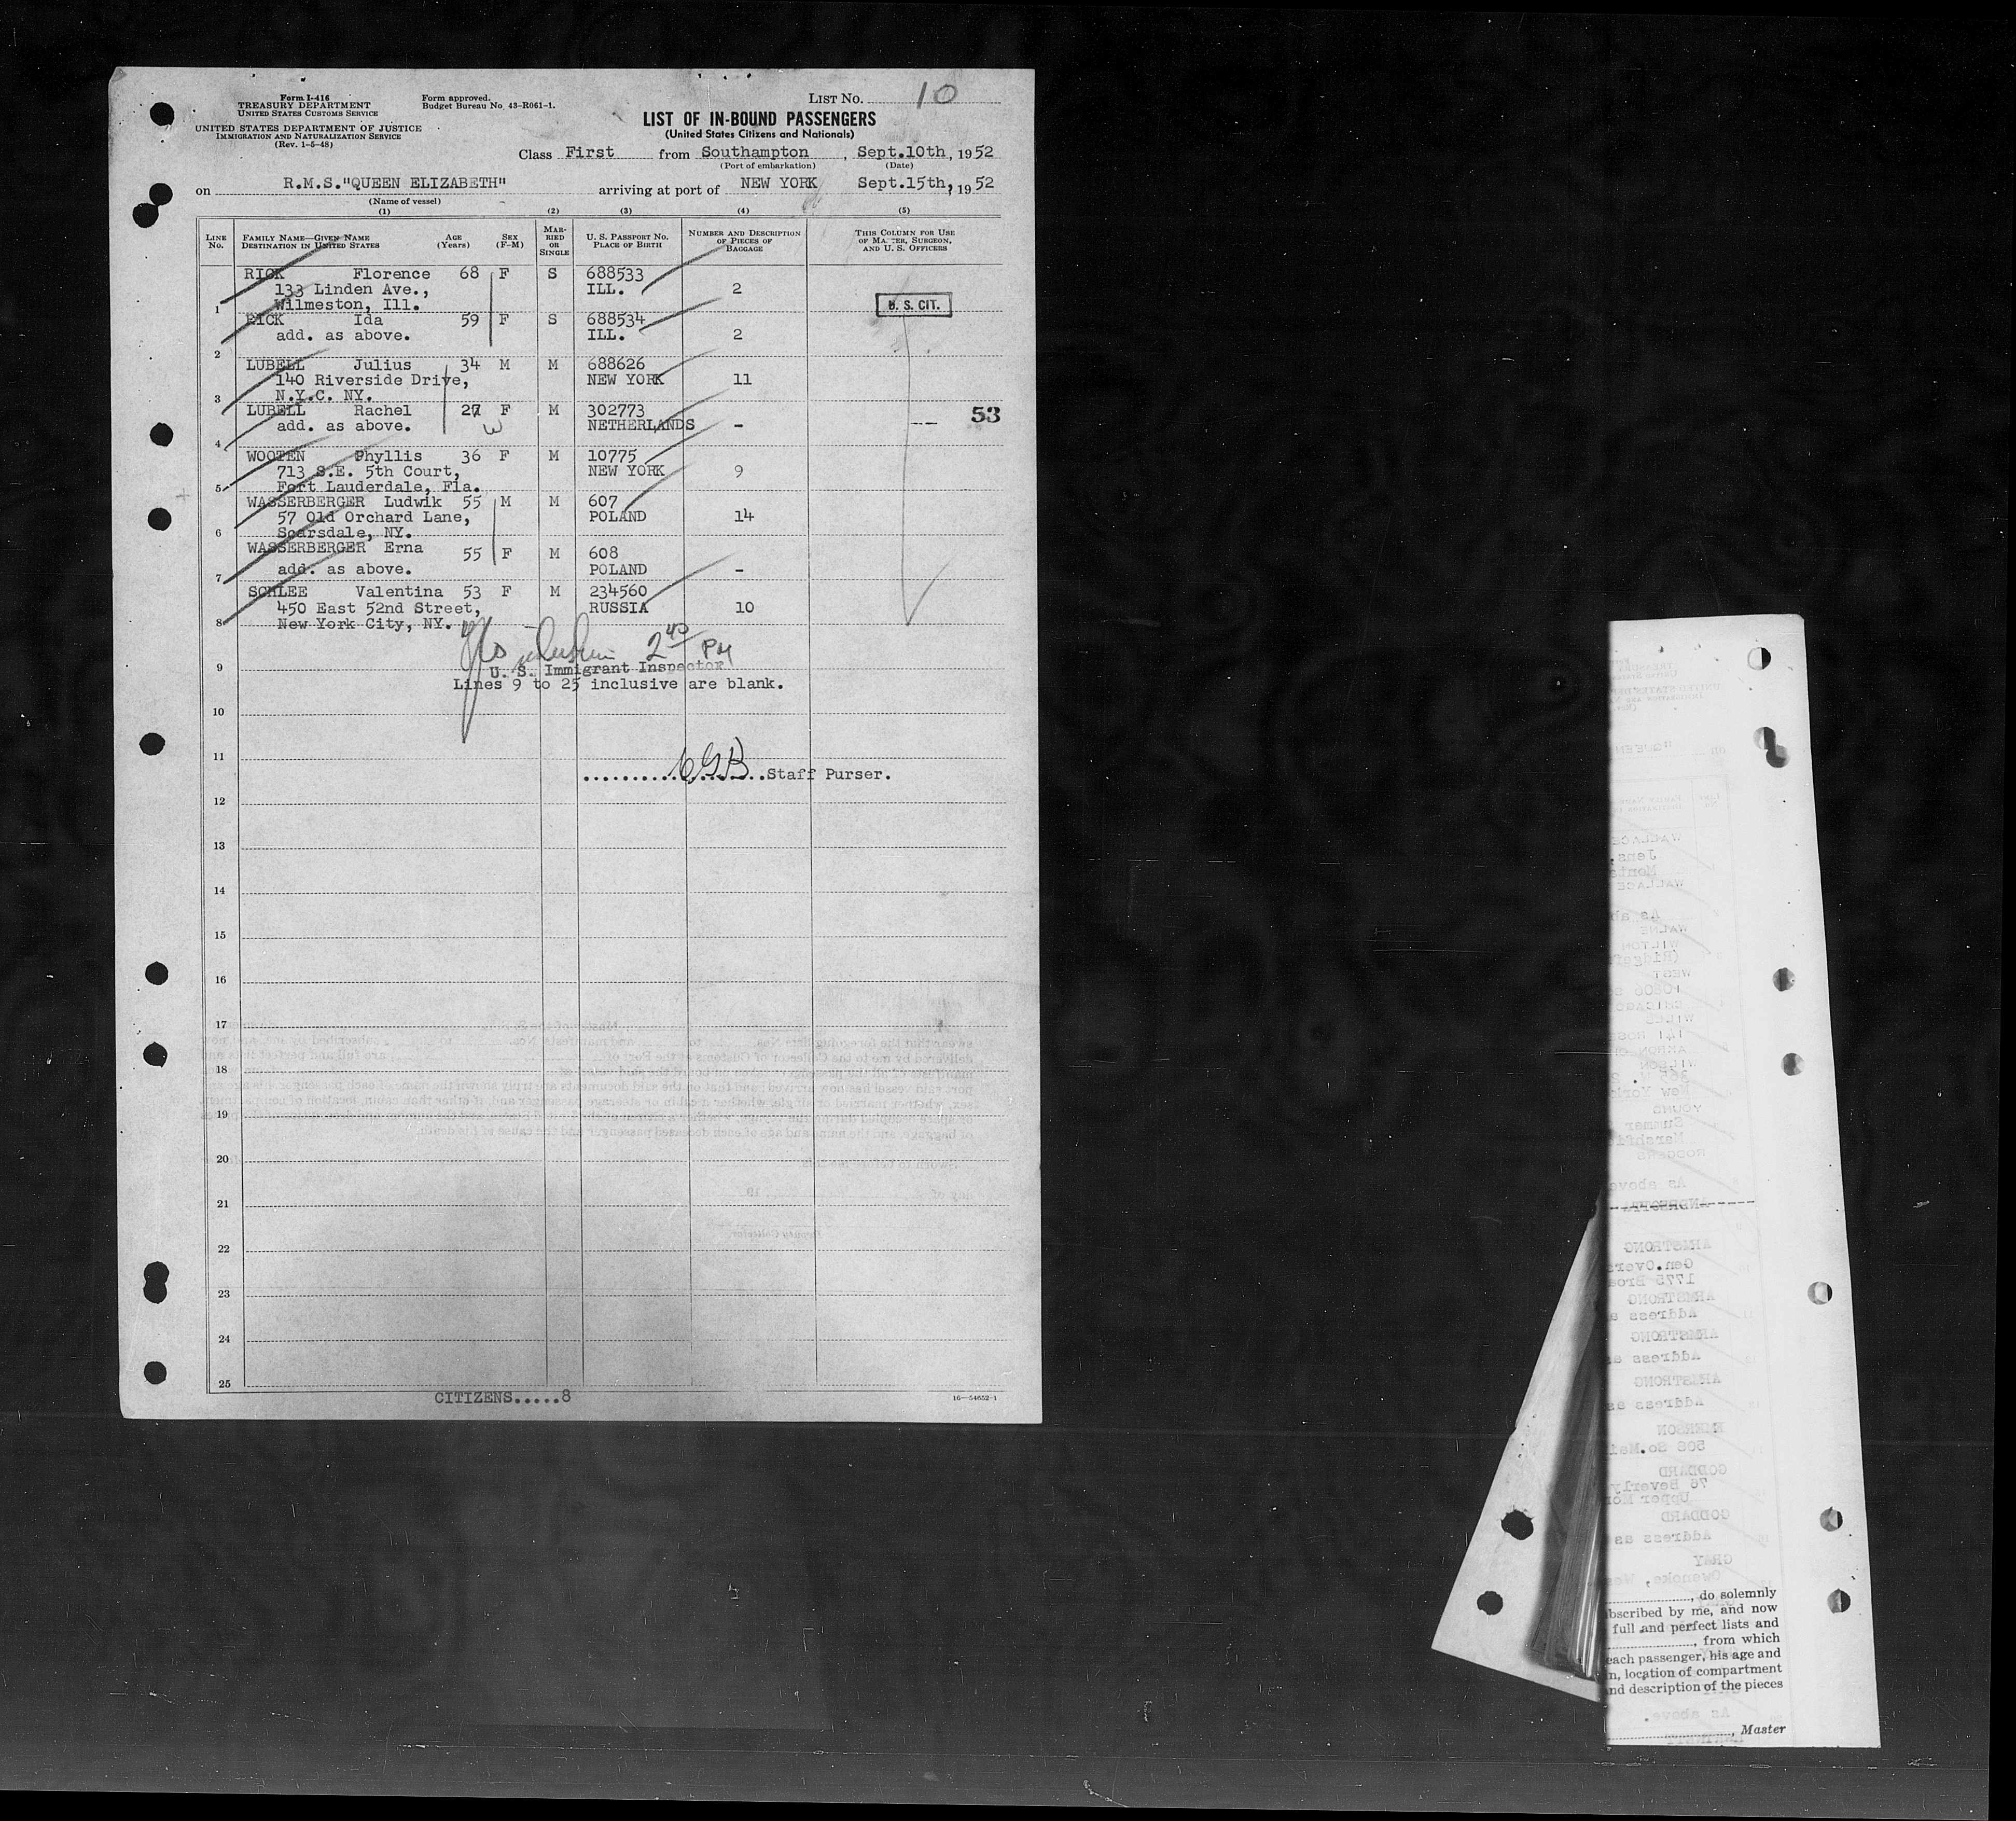 Form I-416
TREASURY DEPARTMENT
UNITED STATES CUSTOMS SERVICE
UNITED STATES DEPARTMENT OF JUSTICE
IMMIGRATION AND NATURALIZATION SERVICE
(Rev. 1-5-48)
Form approved.
Budget Bureau No. 43-R061-1.
LIST NO. 10
LIST OF IN-BOUND PASSENGERS
(United States Citizens and Nationals)
Class First from Southampton, Sept.10th, 1952
(Port of embarkation) (Date)
on R.M.S."QUEEN ELIZABETH" arriving at port of NEW YORK Sept.15th, 1952
(Name of vessel)
(1) (2) (3) (4) (5)
LINE NO.
FAMILY NAME—GIVEN NAME
DESTINATION IN UNITED STATES
AGE (Years)
SEX (F-M)
MARRIED OR SINGLE
U. S. PASSPORT NO.
PLACE OF BIRTH
NUMBER AND DESCRIPTION OF PIECES OF BAGGAGE
THIS COLUMN FOR USE OF MASTER, SURGEON, AND U. S. OFFICERS
RICK Florence 68 F S 688533
133 Linden Ave., ILL. 2
1 Wilmeston, Ill. U. S. CIT.
RICK Ida 59 F S 688534
add. as above. ILL. 2
2
LUBELL Julius 34 M M 688626
140 Riverside Drive, NEW YORK 11
3 N.Y.C. NY.
LUBELL Rachel 27 F M 302773 53
add. as above. W NETHERLANDS - --
4
WOOTEN Phyllis 36 F M 10775
713 S.E. 5th Court, NEW YORK 9
5 Fort Lauderdale, Fla.
WASSERBERGER Ludwik 55 M M 607
57 Old Orchard Lane, POLAND 14
6 Scarsdale, NY.
WASSERBERGER Erna 55 F M 608
add. as above. POLAND -
7
SCHLEE Valentina 53 F M 234560
450 East 52nd Street, RUSSIA 10
8 New York City, NY.
2 40 PM
9 U. S. Immigrant Inspector
Lines 9 to 25 inclusive are blank.
10
11
..........CGB..Staff Purser.
12
13
14
15
16
17
18
19
20
21
22
23
24
25
CITIZENS.....8
16—54652-1
, do solemnly
bscribed by me, and now
full and perfect lists and
, from which
each passenger, his age and
n, location of compartment
nd description of the pieces
, Master